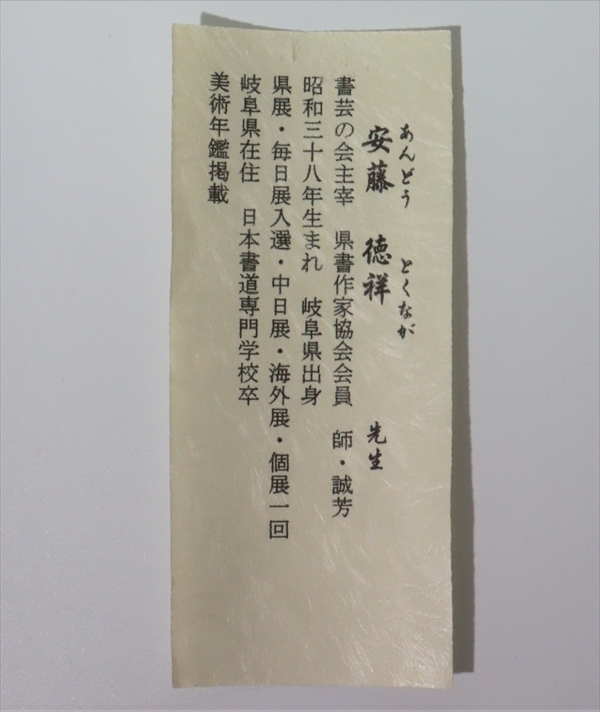 あんどう とくなが
安藤 徳祥 先生
書芸の会主宰 県書作家協会会員 師・誠芳
昭和三十八年生まれ 岐阜県出身
県展・毎日展入選・中日展・海外展・個展一回
岐阜県在住 日本書道専門学校卒
美術年鑑掲載